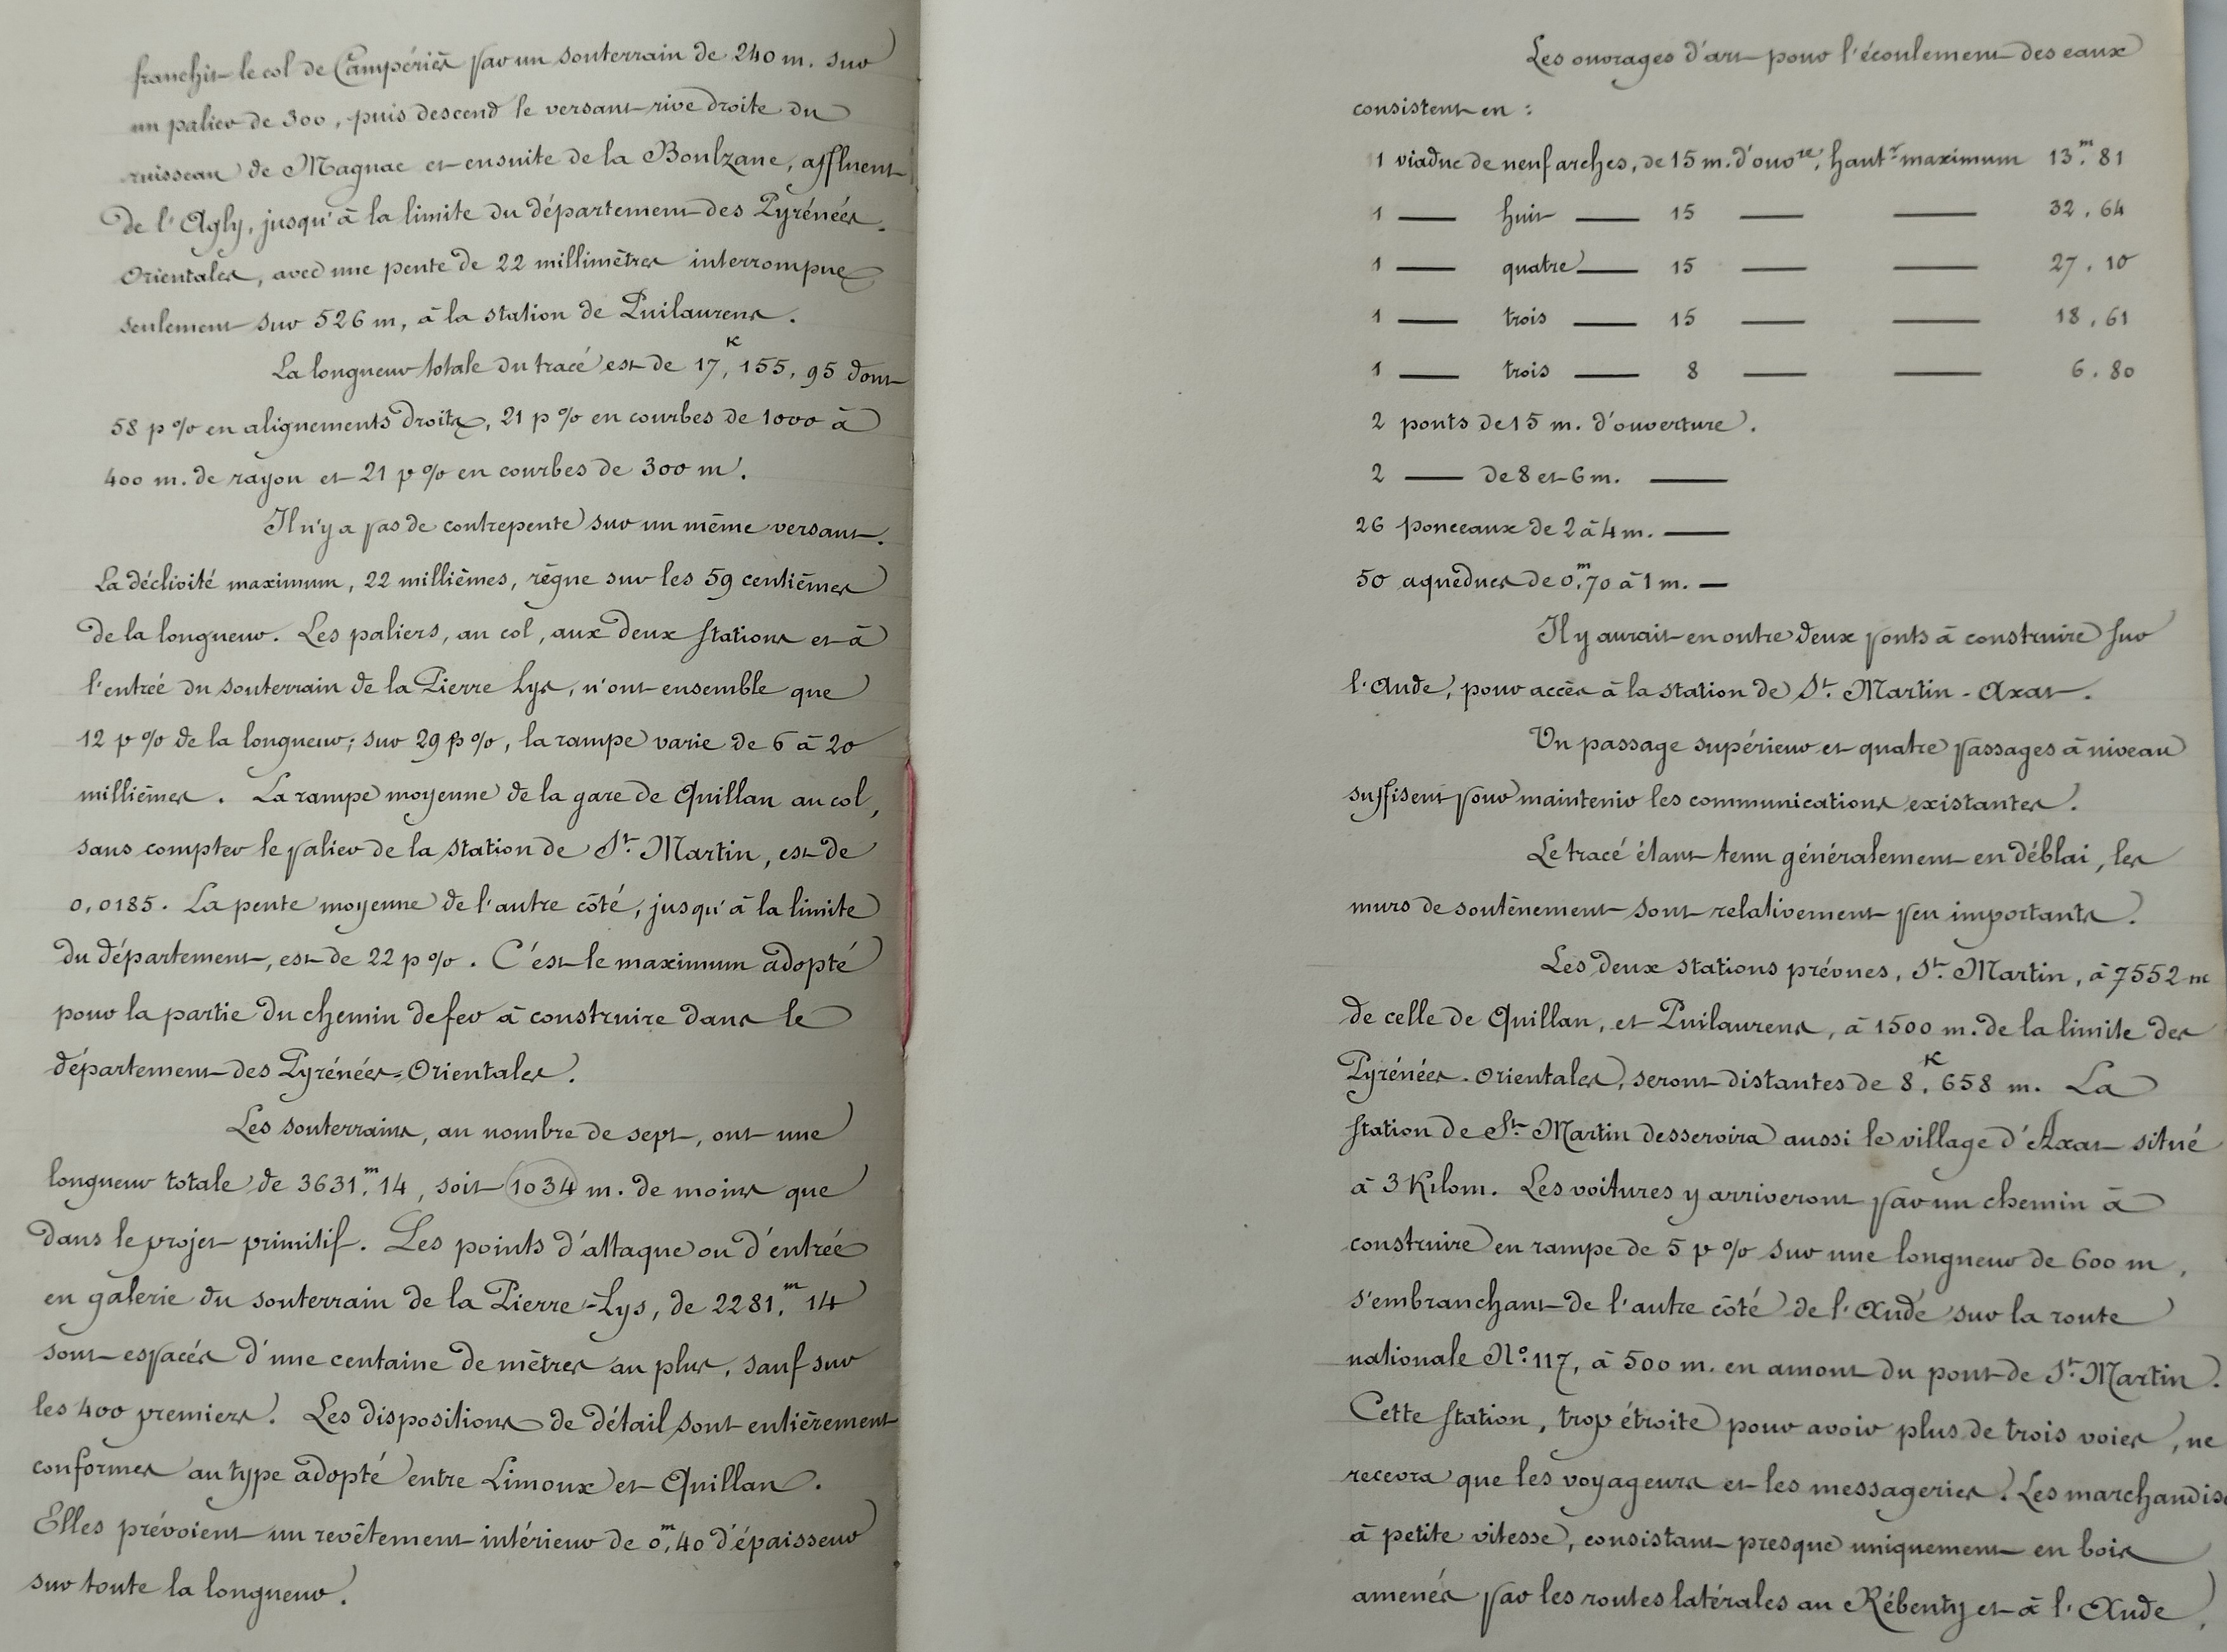 franchit le col de Campériés par un souterrain de 240 m. sur
un palier de 300, puis descend le versant rive droite du
ruisseau de Magnac et ensuite de la Boulzane, affluent
de l'Agly, jusqu'à la limite du département des Pyrénées-
Orientales, avec une pente de 22 millimètres interrompue
seulement sur 526 m, à la station de Puilaurens.
La longueur totale du tracé est de 17K,155,95 dont
58 p % en alignements droits, 21 p % en courbes de 1000 à
400 m. de rayon et 21 p % en courbes de 300 m.
Il n'y a pas de contrepente sur un même versant.
La déclivité maximum, 22 millièmes, règne sur les 59 centièmes
de la longueur. Les paliers, au col, aux deux stations et à
l'entrée du souterrain de la Pierre Lys, n'ont ensemble que
12 p % de la longueur; sur 29 p %, la rampe varie de 6 à 20
millièmes. La rampe moyenne de la gare de Quillan au col,
sans compter le palier de la station de St. Martin, est de
0,0185. La pente moyenne de l'autre côté, jusqu'à la limite
du département, est de 22 p %. C'est le maximum adopté
pour la partie du chemin de fer à construire dans le
département des Pyrénées-Orientales.
Les souterrains, au nombre de sept, ont une
longueur totale de 3631m,14, soit 1034 m. de moins que
dans le projet primitif. Les points d'attaque ou d'entrée
en galerie du souterrain de la Pierre-Lys, de 2281,m14
sont espacés d'une centaine de mètres au plus, sauf sur
les 400 premiers. Les dispositions de détail sont entièrement
conformes au type adopté entre Limoux et Quillan.
Elles prévoient un revêtement intérieur de 0m,40 d'épaisseur
sur toute la longueur.
Les ouvrages d'art pour l'écoulement des eaux
consistent en :
1 viaduc de neuf arches, de 15 m. d'ouvre, hautr maximum 13m.81
1 — huit — 15 — — 32,64
1 — quatre — 15 — — 27,10
1 — trois — 15 — — 18,61
1 — trois — 8 — — 6.80
2 ponts de 15 m. d'ouverture.
2 — de 8 et 6 m. —
26 ponceaux de 2 à 4 m. —
50 aqueducs de 0m,70 à 1 m. —
Il y aurait en outre deux ponts à construire sur
l'Aude, pour accès à la station de St. Martin-Axat.
Un passage supérieur et quatre passages à niveau
suffisent pour maintenir les communications existantes.
Le tracé étant tenu généralement en déblai, les
murs de soutènement sont relativement peu importants.
Les deux stations prévues, St. Martin, à 7552 m
de celle de Quillan, et Puilaurens, à 1500 m. de la limite des
Pyrénées-Orientales, seront distantes de 8K,658 m. La
station de St. Martin desservira aussi le village d'Axat situé
à 3 Kilom. Les voitures y arriveront par un chemin à
construire en rampe de 5 p % sur une longueur de 600 m,
s'embranchant de l'autre côté de l'Aude sur la route
nationale No. 117, à 500 m. en amont du pont de St. Martin.
Cette station, trop étroite pour avoir plus de trois voies, ne
recevra que les voyageurs et les messageries. Les marchandis
à petite vitesse, consistant presque uniquement en bois
amenés par les routes latérales au Rébenty et à l'Aude,